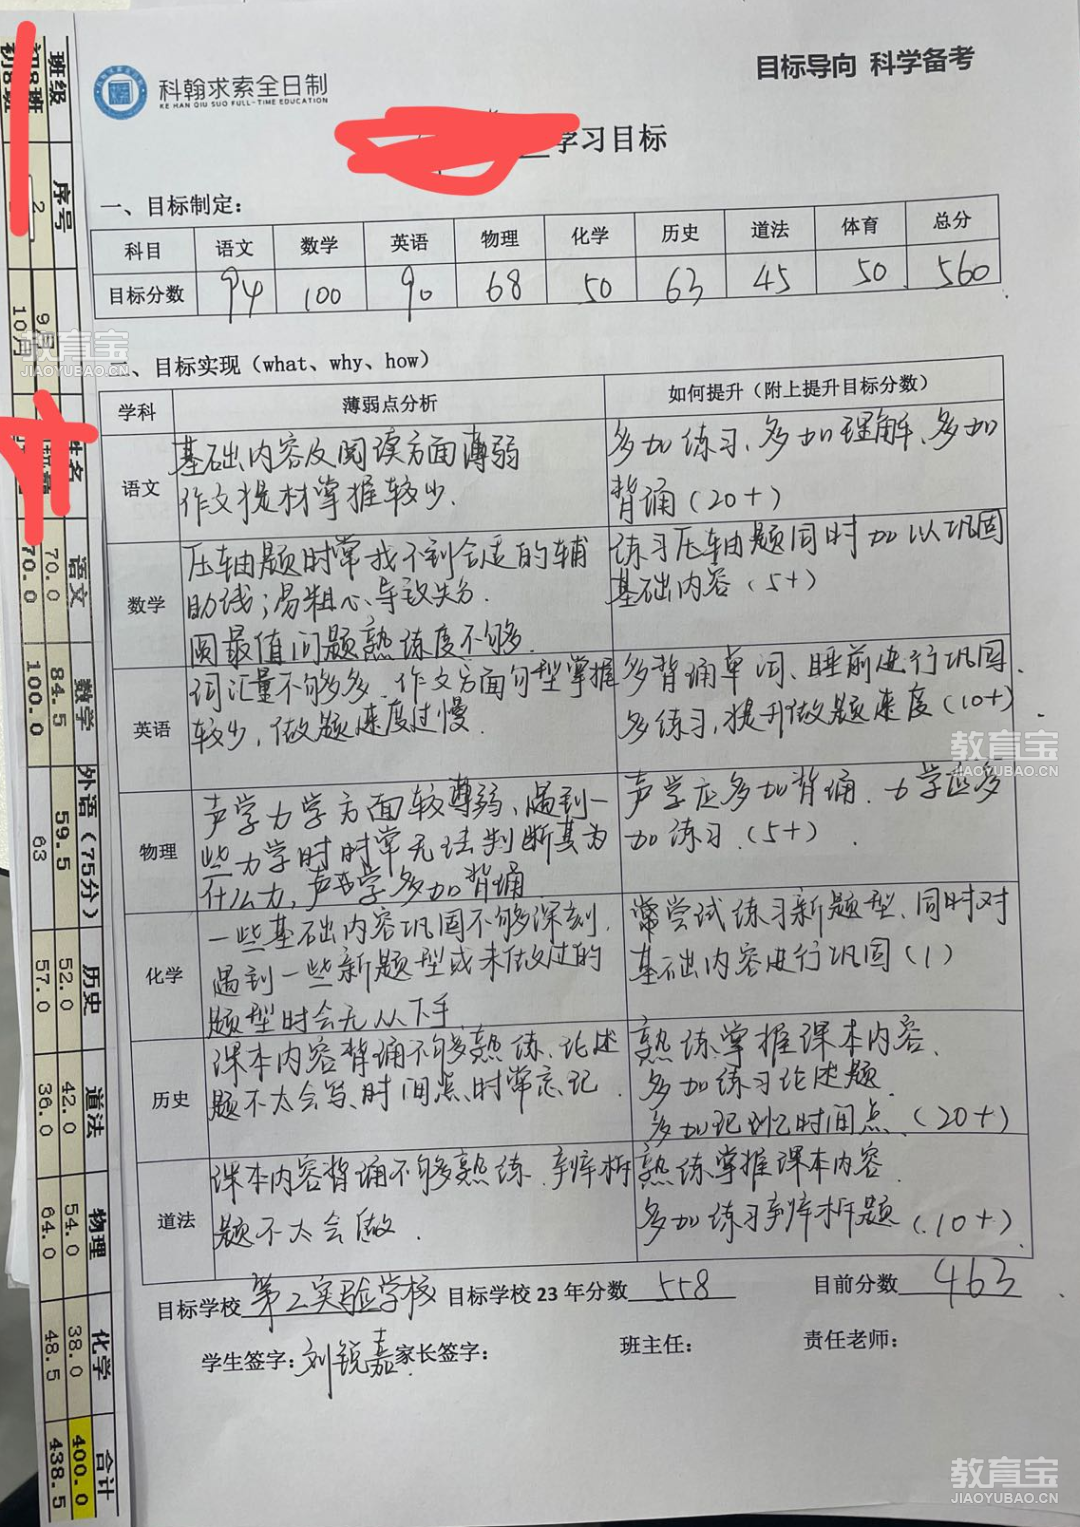 科翰求索全日制
KE HAN QIU SUO FULL-TIME EDUCATION
目标导向 科学备考
学习目标
一、目标制定：
科目 语文 数学 英语 物理 化学 历史 道法 体育 总分
目标分数 94 100 90 68 50 63 45 50 560
二、目标实现（what、why、how）
学科 薄弱点分析 如何提升（附上提升目标分数）
语文
基础内容及阅读方面薄弱
作文提材掌握较少.
多加练习、多加理解、多加
背诵（20+）
数学
压轴题时常找不到合适的辅
助线；易粗心、导致失分.
圆最值问题熟练度不够.
练习压轴题同时加以巩固
基础内容（5+）
英语
词汇量不够多、作文方面句型掌握
较少，做题速度过慢
多背诵单词、睡前进行巩固.
多练习，提升做题速度（10+）.
物理
声学力学方面较薄弱、遇到一
些力学时时常无法判断其为
什么力，声学多加背诵
声学应多加背诵.力学应多
加练习.（5+）.
化学
一些基础内容巩固不够深刻.
遇到一些新题型或未做过的
题型时会无从下手
常尝试练习新题型、同时对
基础内容进行巩固（1）
历史
课本内容背诵不够熟练、论述
题不太会写、时间点时常忘记.
熟练掌握课本内容.
多加练习论述题.
多加记忆时间点.（20+）
道法
课本内容背诵不够熟练.辛辨析
题不太会做.
熟练掌握课本内容.
多加练习辛辨析题（10+）.
目标学校 第二实验学校 目标学校 23 年分数 558 目前分数 463
学生签字：刘锐嘉 家长签字： 班主任： 责任老师：
班级 序号 姓名 语文 数学 外语（75分） 历史 道法 物理 化学 合计
初8班 2 9月 70.0 84.5 59.5 52.0 42.0 54.0 38.0 400.0
初8班 10月 70.0 100.0 63 57.0 36.0 64.0 48.5 438.5
教育宝
JIAOYUBAO.CN
教育宝
JIAOYUBAO.CN
教育宝
JIAOYUBAO.CN